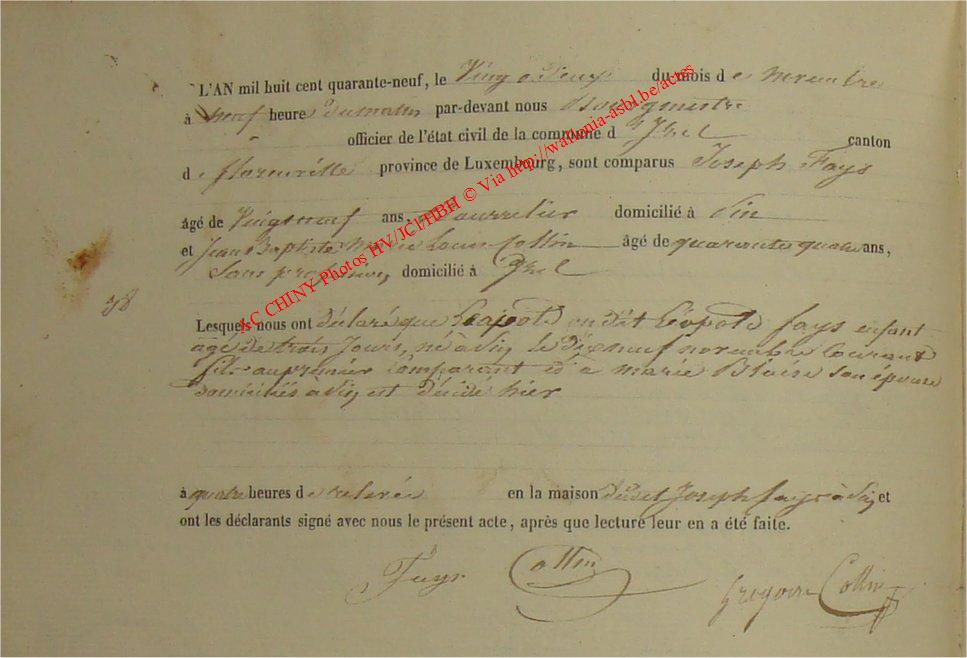 L'AN mil huit cent quarante-neuf, le Vingt deux du mois de novembre
à neuf heure du matin par-devant nous Bourgmestre
officier de l'état civil de la commune d'Izel canton
de florenville province de Luxembourg, sont comparus Joseph Fays
âgé de Vingt neuf ans, Bourrelier domicilié à Pin
et Jean Baptiste Marie Louis Collin âgé de quarante quatre ans,
Sans profession, domicilié à Izel
38
Lesquels nous ont déclaré que Léopold fays enfant
agé de trois Jours, né à Pin le Dix neuf novembre Courant
fils au premier Comparant et à marie Blaise son épouse
domiciliés à Pin est décédé hier
à quatre heures de relevée en la maison dudit Joseph fays à Pin et
ont les déclarants signé avec nous le présent acte, après que lecture leur en a été faite.
Fays Collin Gregoire Collin
AC CHINY Photos HV/JCl/HBH © Via http://wallonia-asbl.be/actes